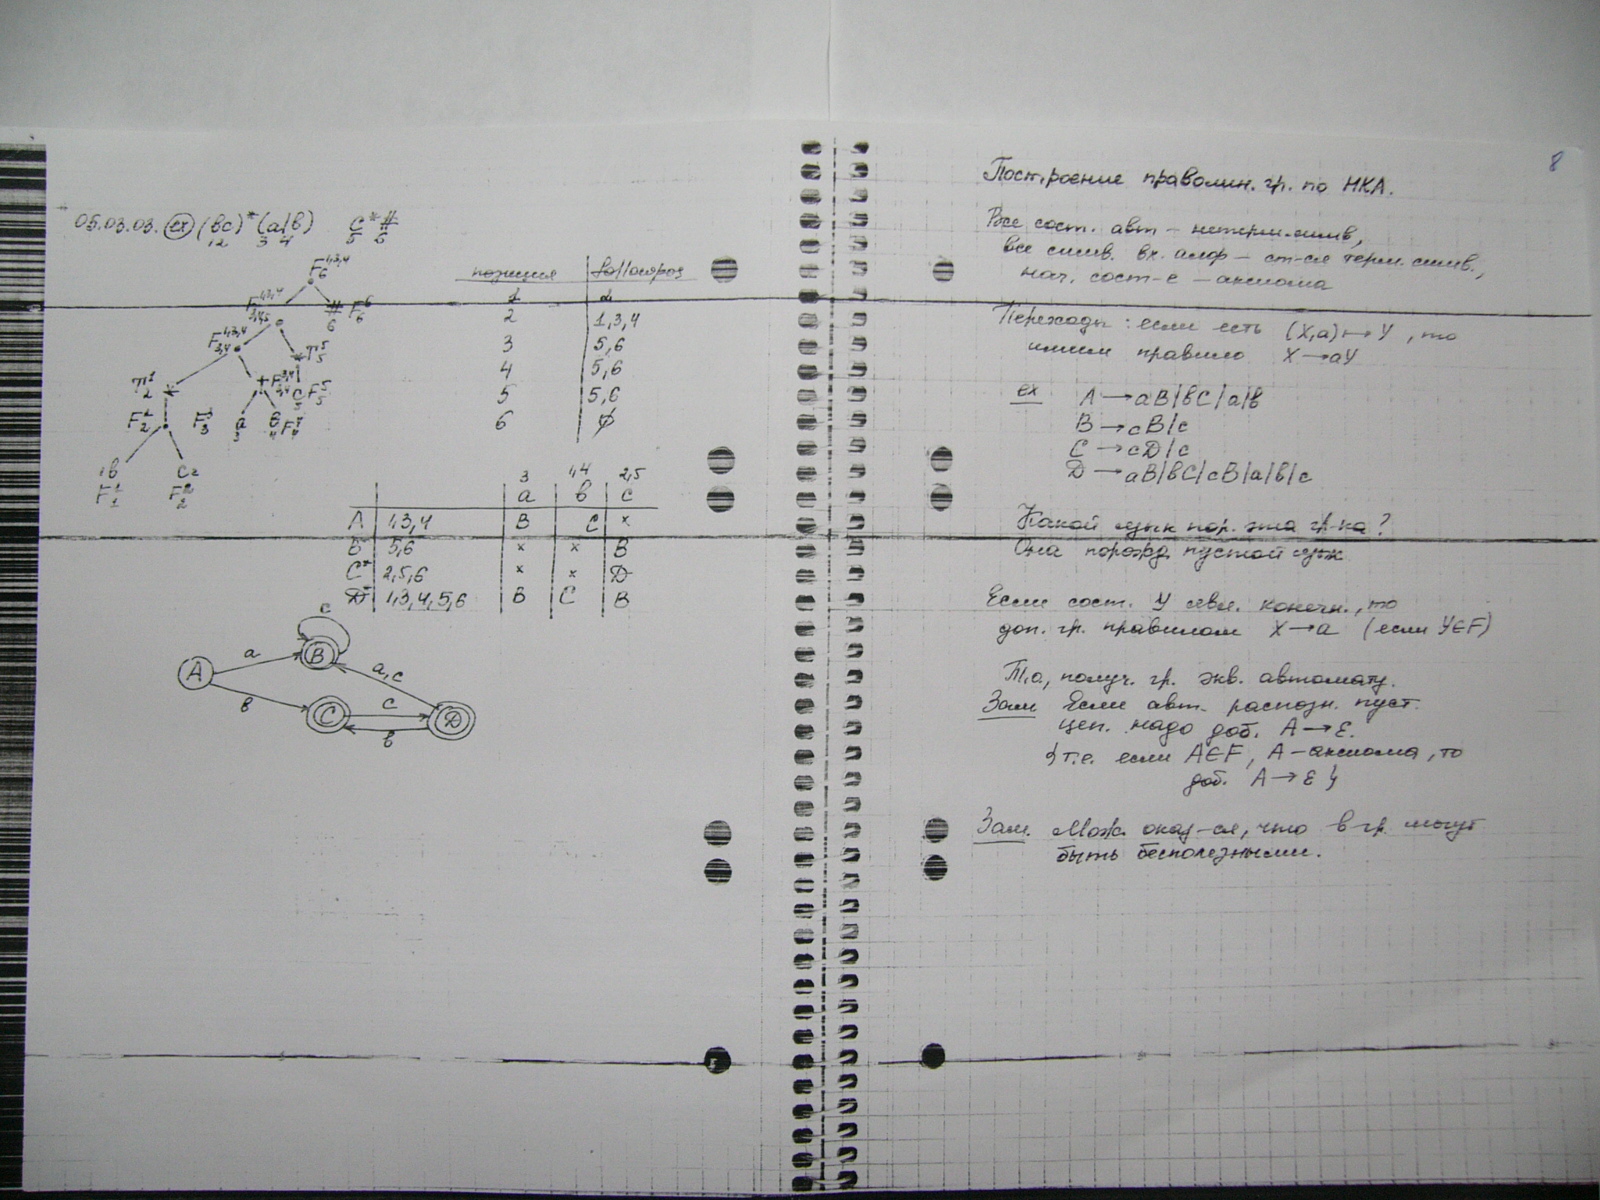 05.03.03. ex (bc)* (a|b) c* #
12 3 4 5 6
F 1,3,4 6
F 1,3,4 3,4,5
# 6 F 6 6
F 1,3,4 3,4
* T 5 5
T 1 2 *
+ F 3,4 3,4
c 5 F 5 5
F 1 2
F 3 3
a 3
b 4 F 4 4
1b
c2
F 1 1
F 2 2
позиция followpos
1 2
2 1,3,4
3 5,6
4 5,6
5 5,6
6 ∅
3 1,4 2,5
a b c
A 1,3,4 B C x
B* 5,6 x x B
C* 2,5,6 x x D
D* 1,3,4,5,6 B C B
c
A a B a,c
b C c D
b
8
Построение праволин. гр. по НКА.
Все сост. авт – нетерм. симв,
все симв. вх. алф – ст-ся терм. симв.,
нач. сост-е – аксиома
Переходы: если есть (X,a) ↦ Y, то
пишем правило X → aY
ex A → aB|bC|a|b
B → cB|c
C → cD|c
D → aB|bC|cB|a|b|c
Какой язык пор. эта гр-ка?
Она порожд пустой язык
Если сост. Y явл. конечн., то
доп. гр. правилом X → a (если Y∈F)
Т.о, получ. гр. экв. автомату.
Зам Если авт. распозн. пуст.
цеп. надо доб. A → ε.
{т.е. если A∈F, A – аксиома, то
доб. A → ε}
Зам. Мож. оказ-ся, что в гр. могут
быть бесполезными.